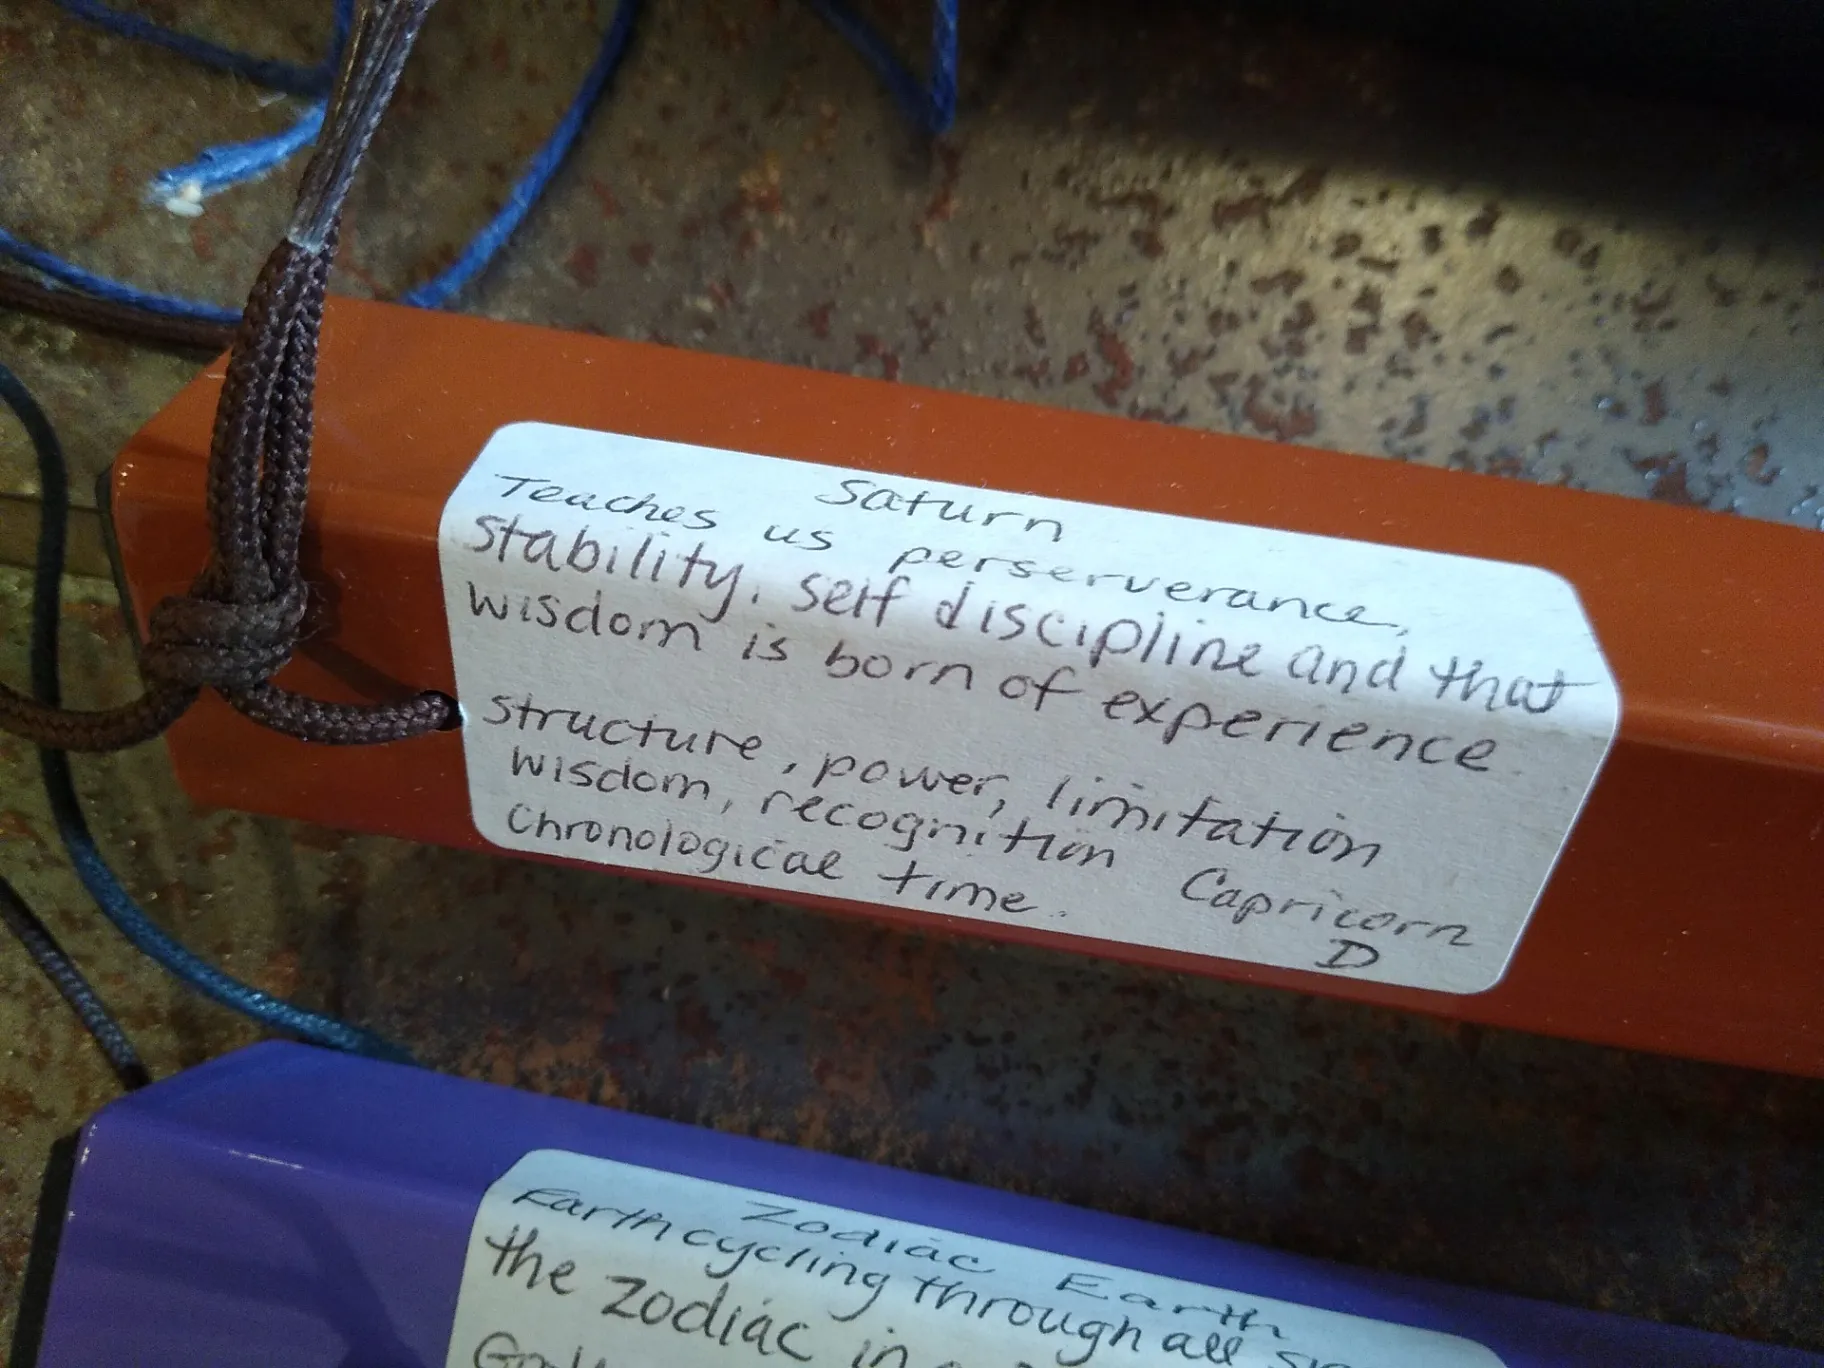 Saturn
Teaches us perserverance,
stability, self discipline and that
wisdom is born of experience.
structure, power, limitation
wisdom, recognition Capricorn
Chronological time. D
Zodiac Earth
Earth cycling through all
the zodiac in